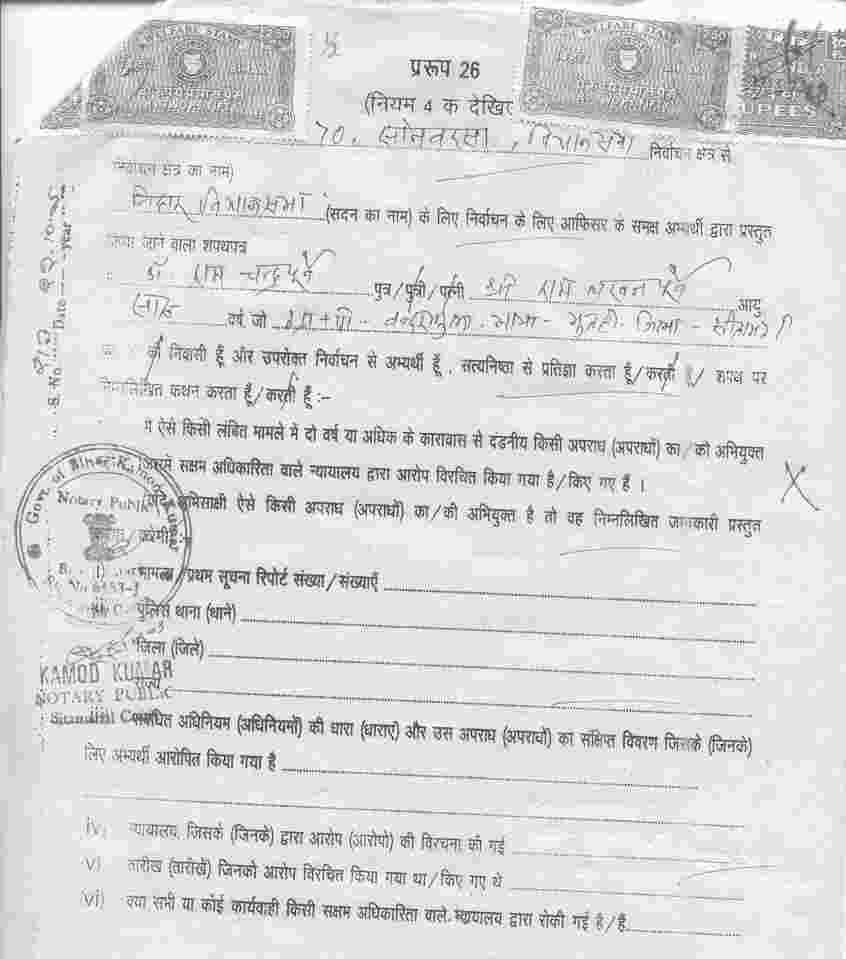 WELFARE STAMP
WELFARE STAMP
RUPEES
प्ररूप 26
(नियम 4 क देखिए
70. सोनबरसा, विधानसभा निर्वाचन क्षेत्र से
निर्वाचन क्षेत्र का नाम)
बिहार विधानसभा (सदन का नाम) के लिए निर्वाचन के लिए आफिसर के समक्ष अभ्यर्थी द्वारा प्रस्तुत
किया जाने वाला शपथपत्र
डॉ. राम चन्द्र पूर्वे पुत्र/पुत्री/पत्नी श्री राम लखन पूर्वे आयु
साठ वर्ष जो ग्रा+पो- जिला-
की निवासी हूँ और उपरोक्त निर्वाचन से अभ्यर्थी हूँ, सत्यनिष्ठा से प्रतिज्ञा करता हूँ/करती हूँ/ शपथ पर
निम्नलिखित कथन करता हूँ/करती हूँ :-
S. No. Date Year
मैं ऐसे किसी लंबित मामले में दो वर्ष या अधिक के कारावास से दंडनीय किसी अपराध (अपराधों) का/की अभियुक्त
जिसमें सक्षम अधिकारिता वाले न्यायालय द्वारा आरोप विरचित किया गया है/किए गए हैं ।
यदि अभिसाक्षी ऐसे किसी अपराध (अपराधों) का/की अभियुक्त है तो वह निम्नलिखित जानकारी प्रस्तुत
करेगी :-
Govt. of Bihar Kamod Kumar
Notary Public
मामला/प्रथम सूचना रिपोर्ट संख्या/संख्याएँ
पुलिस थाना (थाने)
जिला (जिले)
KAMOD KUMAR
राज्य
NOTARY PUBLIC
Sitamarhi Court
संबंधित अधिनियम (अधिनियमों) की धारा (धाराएं) और उस अपराध (अपराधों) का संक्षिप्त विवरण जिसके (जिनके)
लिए अभ्यर्थी आरोपित किया गया है
iv) न्यायालय, जिसके (जिनके) द्वारा आरोप (आरोपो) की विरचना की गई
v) तारीख (तारीखें) जिनको आरोप विरचित किया गया था/किए गए थे
vi) क्या सभी या कोई कार्यवाही किसी सक्षम अधिकारिता वाले न्यायालय द्वारा रोकी गई है/हैं